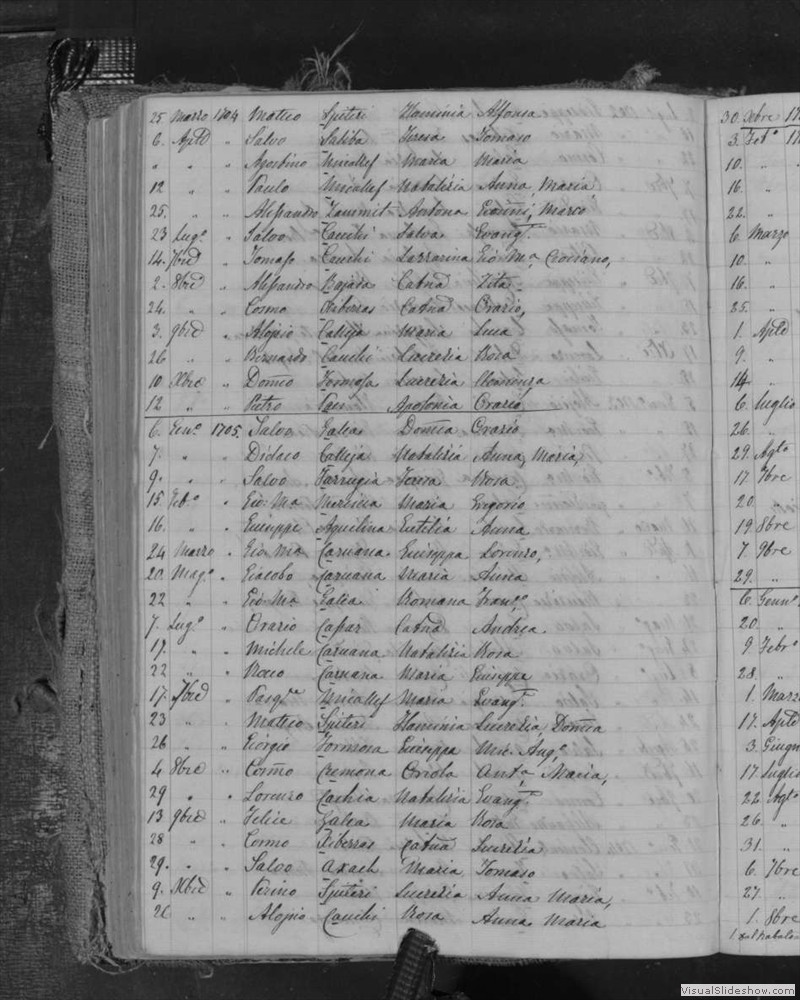 25. Marzo 1704 Matteo Spiteri Flaminia Alfonsa
6. Aple " Salvo Saliba Teresa Tomaso
" " " Agostino Micallef Maria Maria
12 " " Paulo Micallef Natalizia Anna Maria
25. " " Alessandro Zammit Antona Marco
23 Lugo. " Salvo Cauchi Salva Evang.
14. 7bre " Tomaso Cauchi Lazzarina Gio Ma.
2. 8bre " Alessandro Bajada Catna Vita
24. " " Cosmo Xiberras Catna Orazio,
3. 9bre " Aloisio Calleja Maria Luca
26 " " Bernardo Cauchi Lucrezia Rosa
10 Xbre " Domco Formosa Lucrezia
12 " " Pietro Apolonia Orazio
6. Genro. 1705. Salvo Galea Domca Orazio
7. " " Didaco Calleja Natalizia Anna, Maria,
9. " " Salvo Farrugia Teresa Rosa
15. Febo. " Gio Ma Mercieca Maria Gregorio
16. " " Giuseppe Aquilina Anna
24 Marzo " Gio Ma Caruana Giuseppa Lorenzo,
20. Mago. " Giacobo Caruana Maria Anna
22 " " Gio Ma Galea Romana Franco.
7. Lugo. " Orazio Cassar Catna Andrea.
17. " " Michele Caruana Natalizia Rosa
22 " " Caruana Maria Giuseppe
17. 7bre " Pasqle Micallef Maria Evang.
23 " " Matteo Spiteri Flaminia Lucrezia, Domca
26 " " Giorgio Formosa Giuseppa Mic. Ang.
4 8bre " Cosmo Cremona Anta Maria,
29 " " Lorenzo Natalizia Evang.
13 9bre " Felice Galea Maria Rosa
28 " " Cosmo Xiberras Catna Lucrezia
29. " " Salvo Axach Maria Tomaso
9. Xbre " Spiteri Lucrezia Anna Maria,
26 " " Aloisio Cauchi Rosa Anna Maria
30. 17
3. Febo. 17
10. "
16. "
22. "
6. Marzo
10. "
16. "
25. "
1. Aple
9. "
14. "
6. Luglio
26. "
29. Agto
17. 7bre
20.
19. 8bre
7. 9bre
29. "
6. Genno.
20. "
9 Febro
28. "
1. Marzo
17. Aple
3. Giugn
17. Luglio
22. Agto
26. "
31. "
6. 7bre
27. "
1. 8bre
VisualSlideshow.com